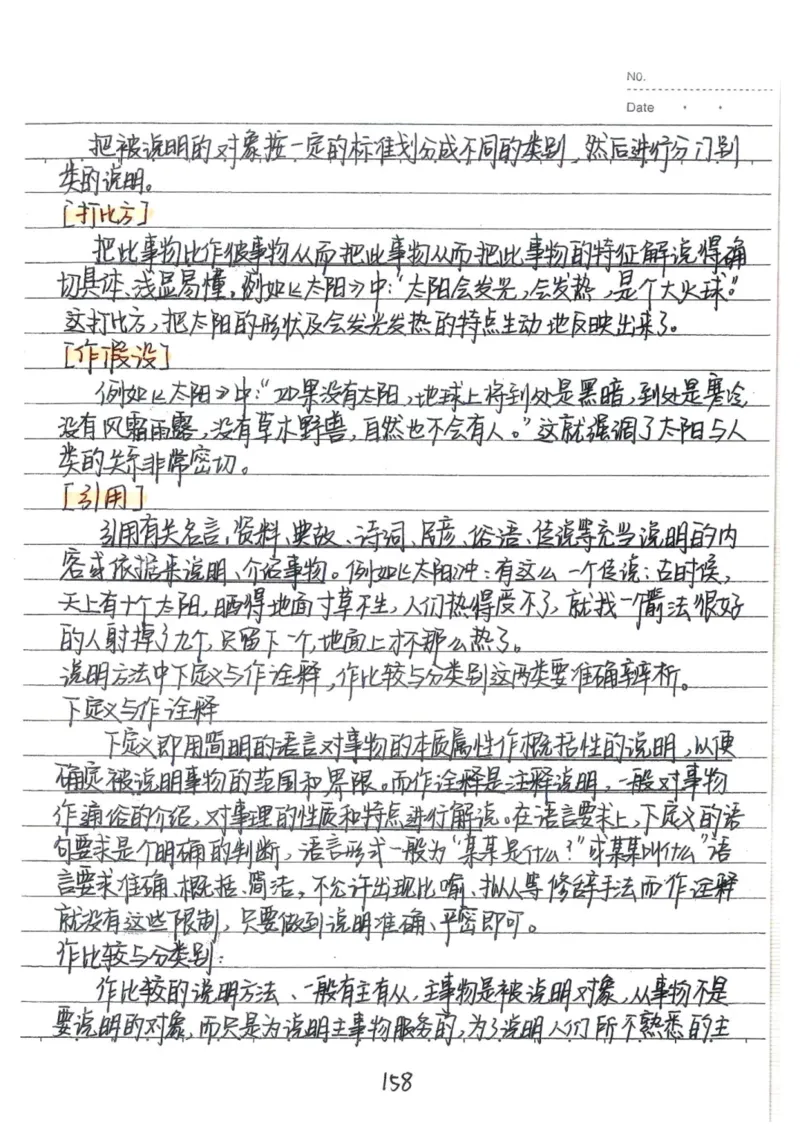 NO.
Date
把被说明的对象按一定的标准划分成不同的类别，然后进行分门别
类的说明。
[打比方]
把此事物比作彼事物从而把此事物从而把此事物的特征解说得确
切具体、浅显易懂，例如《太阳》中："太阳会发光，会发热，是个大火球。"
这打比方，把太阳的形状及会发光发热的特点生动地反映出来了。
[作假设]
例如《太阳》中："如果没有太阳，地球上将到处是黑暗，到处是寒冷
没有风霜雨露，没有草木野兽，自然也不会有人。"这就强调了太阳与人
类的关系非常密切。
[引用]
引用有关名言、资料、典故、诗词、民彦、俗语、传说等充当说明的内
容或依据来说明、介绍事物。例如《太阳》中：有这么一个传说：古时候，
天上有十个太阳，晒得地面寸草不生，人们热得受不了，就找一个箭法很好
的人射掉了九个，只留下一个，地面上才不那么热了。
说明方法中下定义与作诠释，作比较与分类别这两类要准确辨析。
下定义与作诠释
下定义即用简明的语言对事物的本质属性作概括性的说明，以便
确定被说明事物的范围和界限。而作诠释是注释说明，一般对事物
作通俗的介绍，对事理的性质和特点进行解说。在语言要求上，下定义的语
句要求是个明确的判断，语言形式一般为"某某是什么？"或某某叫什么"语
言要求准确、概括、简洁，不允许出现比喻、拟人等修辞手法而作诠释
就没有这些限制，只要做到说明准确、平密即可。
作比较与分类别：
作比较的说明方法、一般有主有从，主事物是被说明对象，从事物不是
要说明的对象，而只是为说明主事物服务的，为了说明人们所不熟悉的主
158